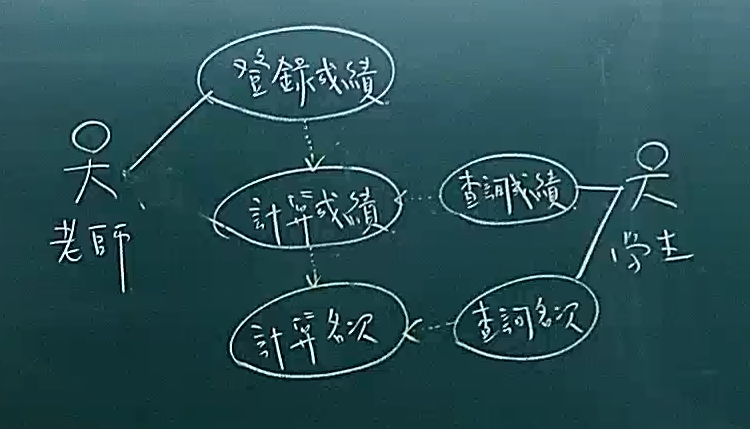 登錄成績
計算成績
查詢成績
老師
學生
計算名次
查詢名次